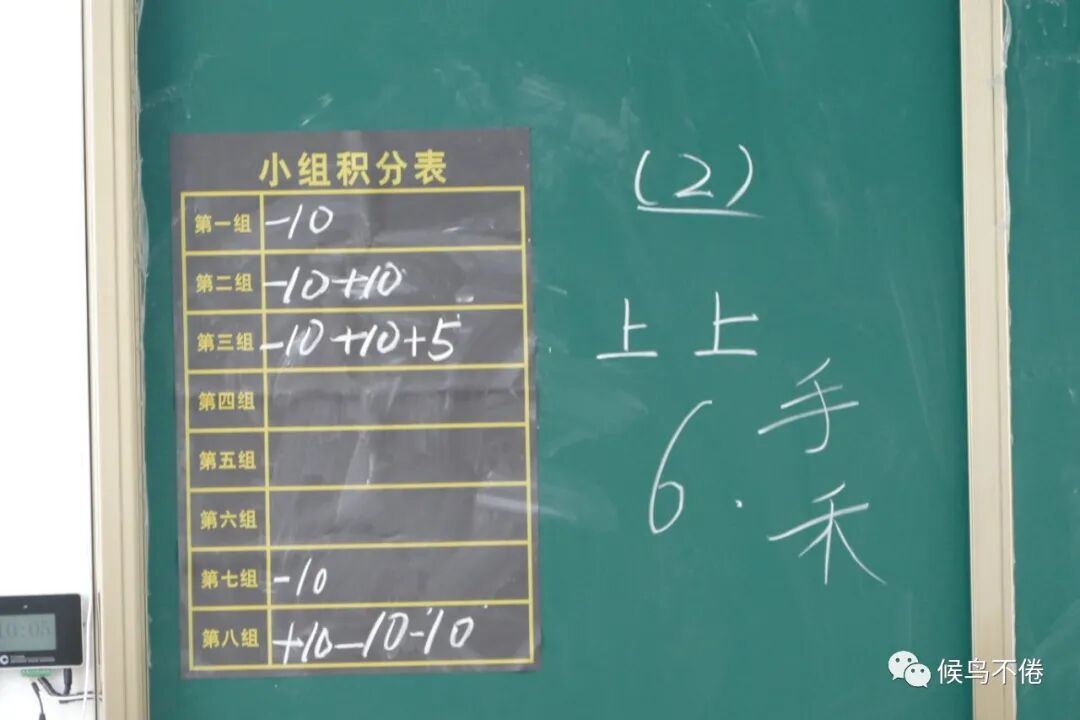 小组积分表
第一组 -10
第二组 -10+10
第三组 -10+10+5
第四组
第五组
第六组
第七组 -10
第八组 +10-10-10
(2)
上上
6.
手
禾
10:05
候鸟不倦